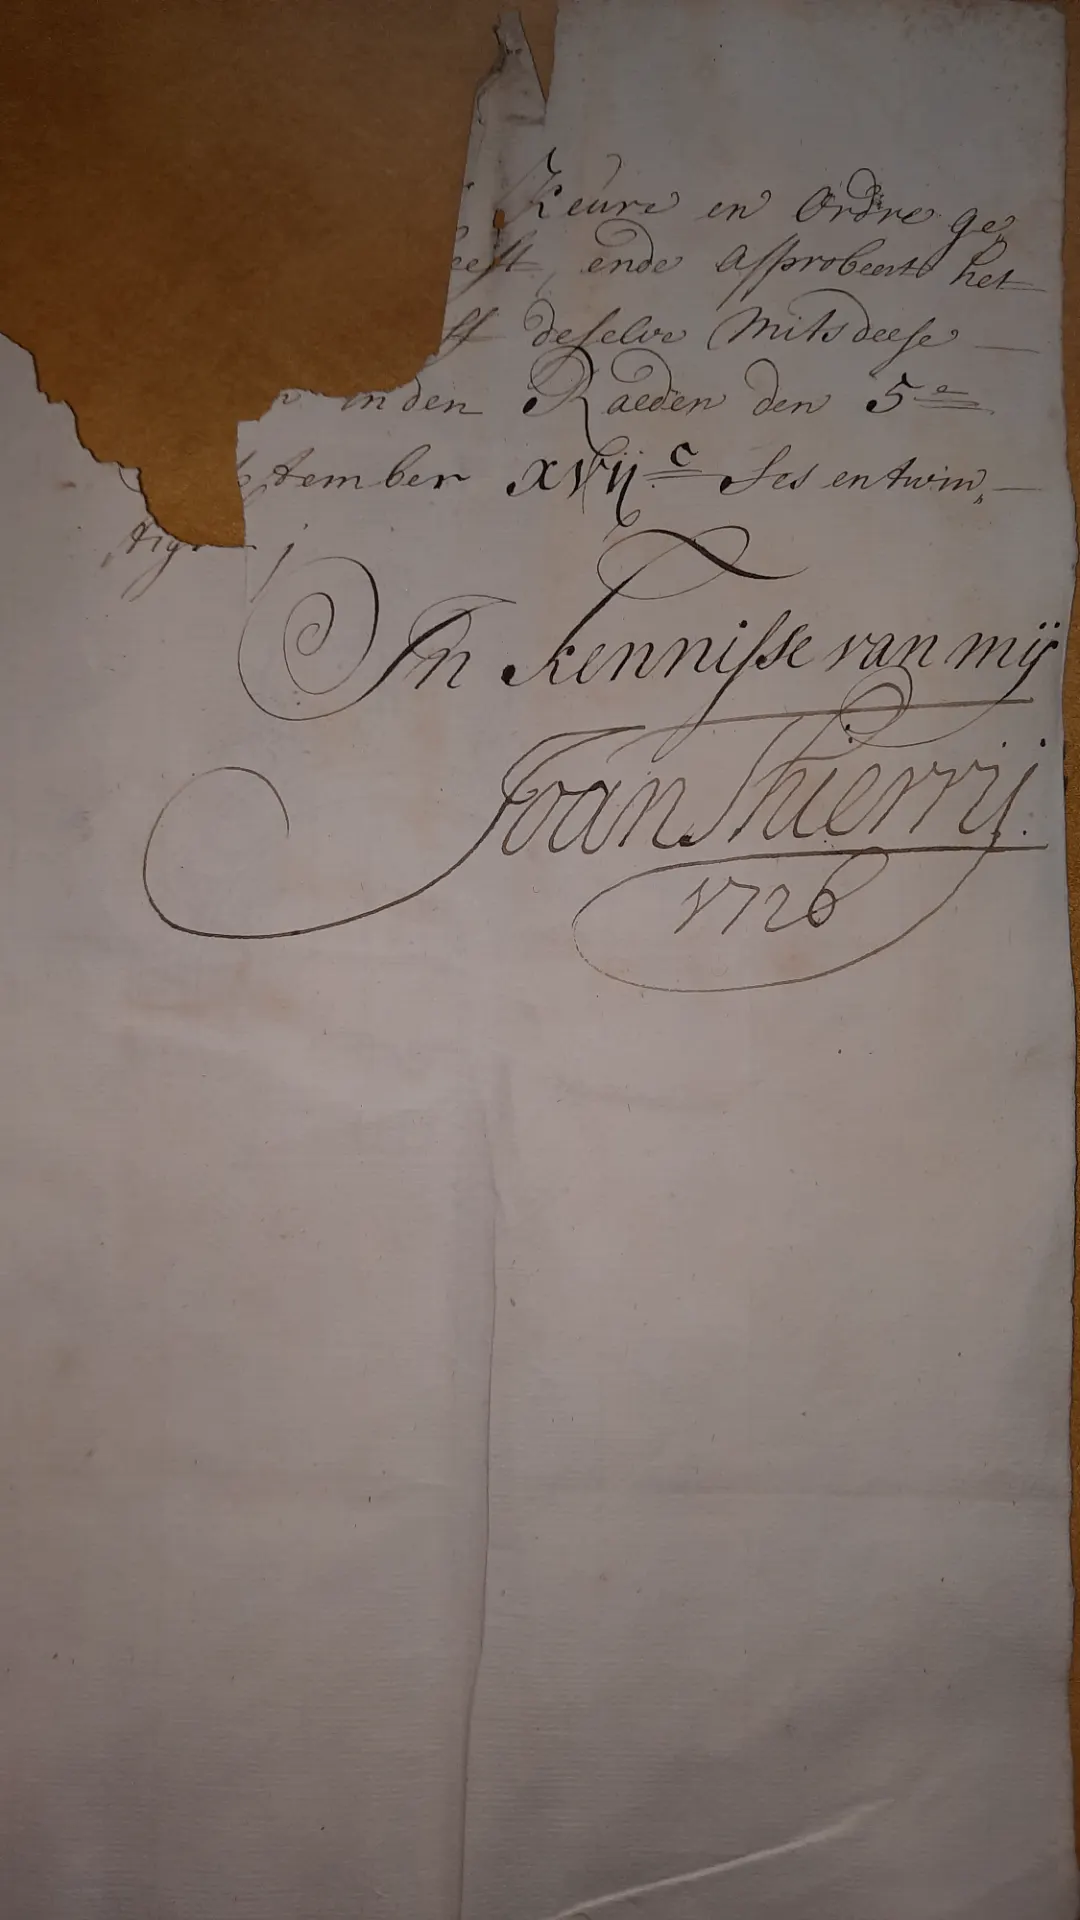 Keure en Ordre ge„
eeft, ende approbeert het
ff deselve Mitsdeese —
n inden Raeden den 5e
ptember XVIJc Ses entwin„ —
tig
In kennisse van mij
Joan Thierrij.
1726